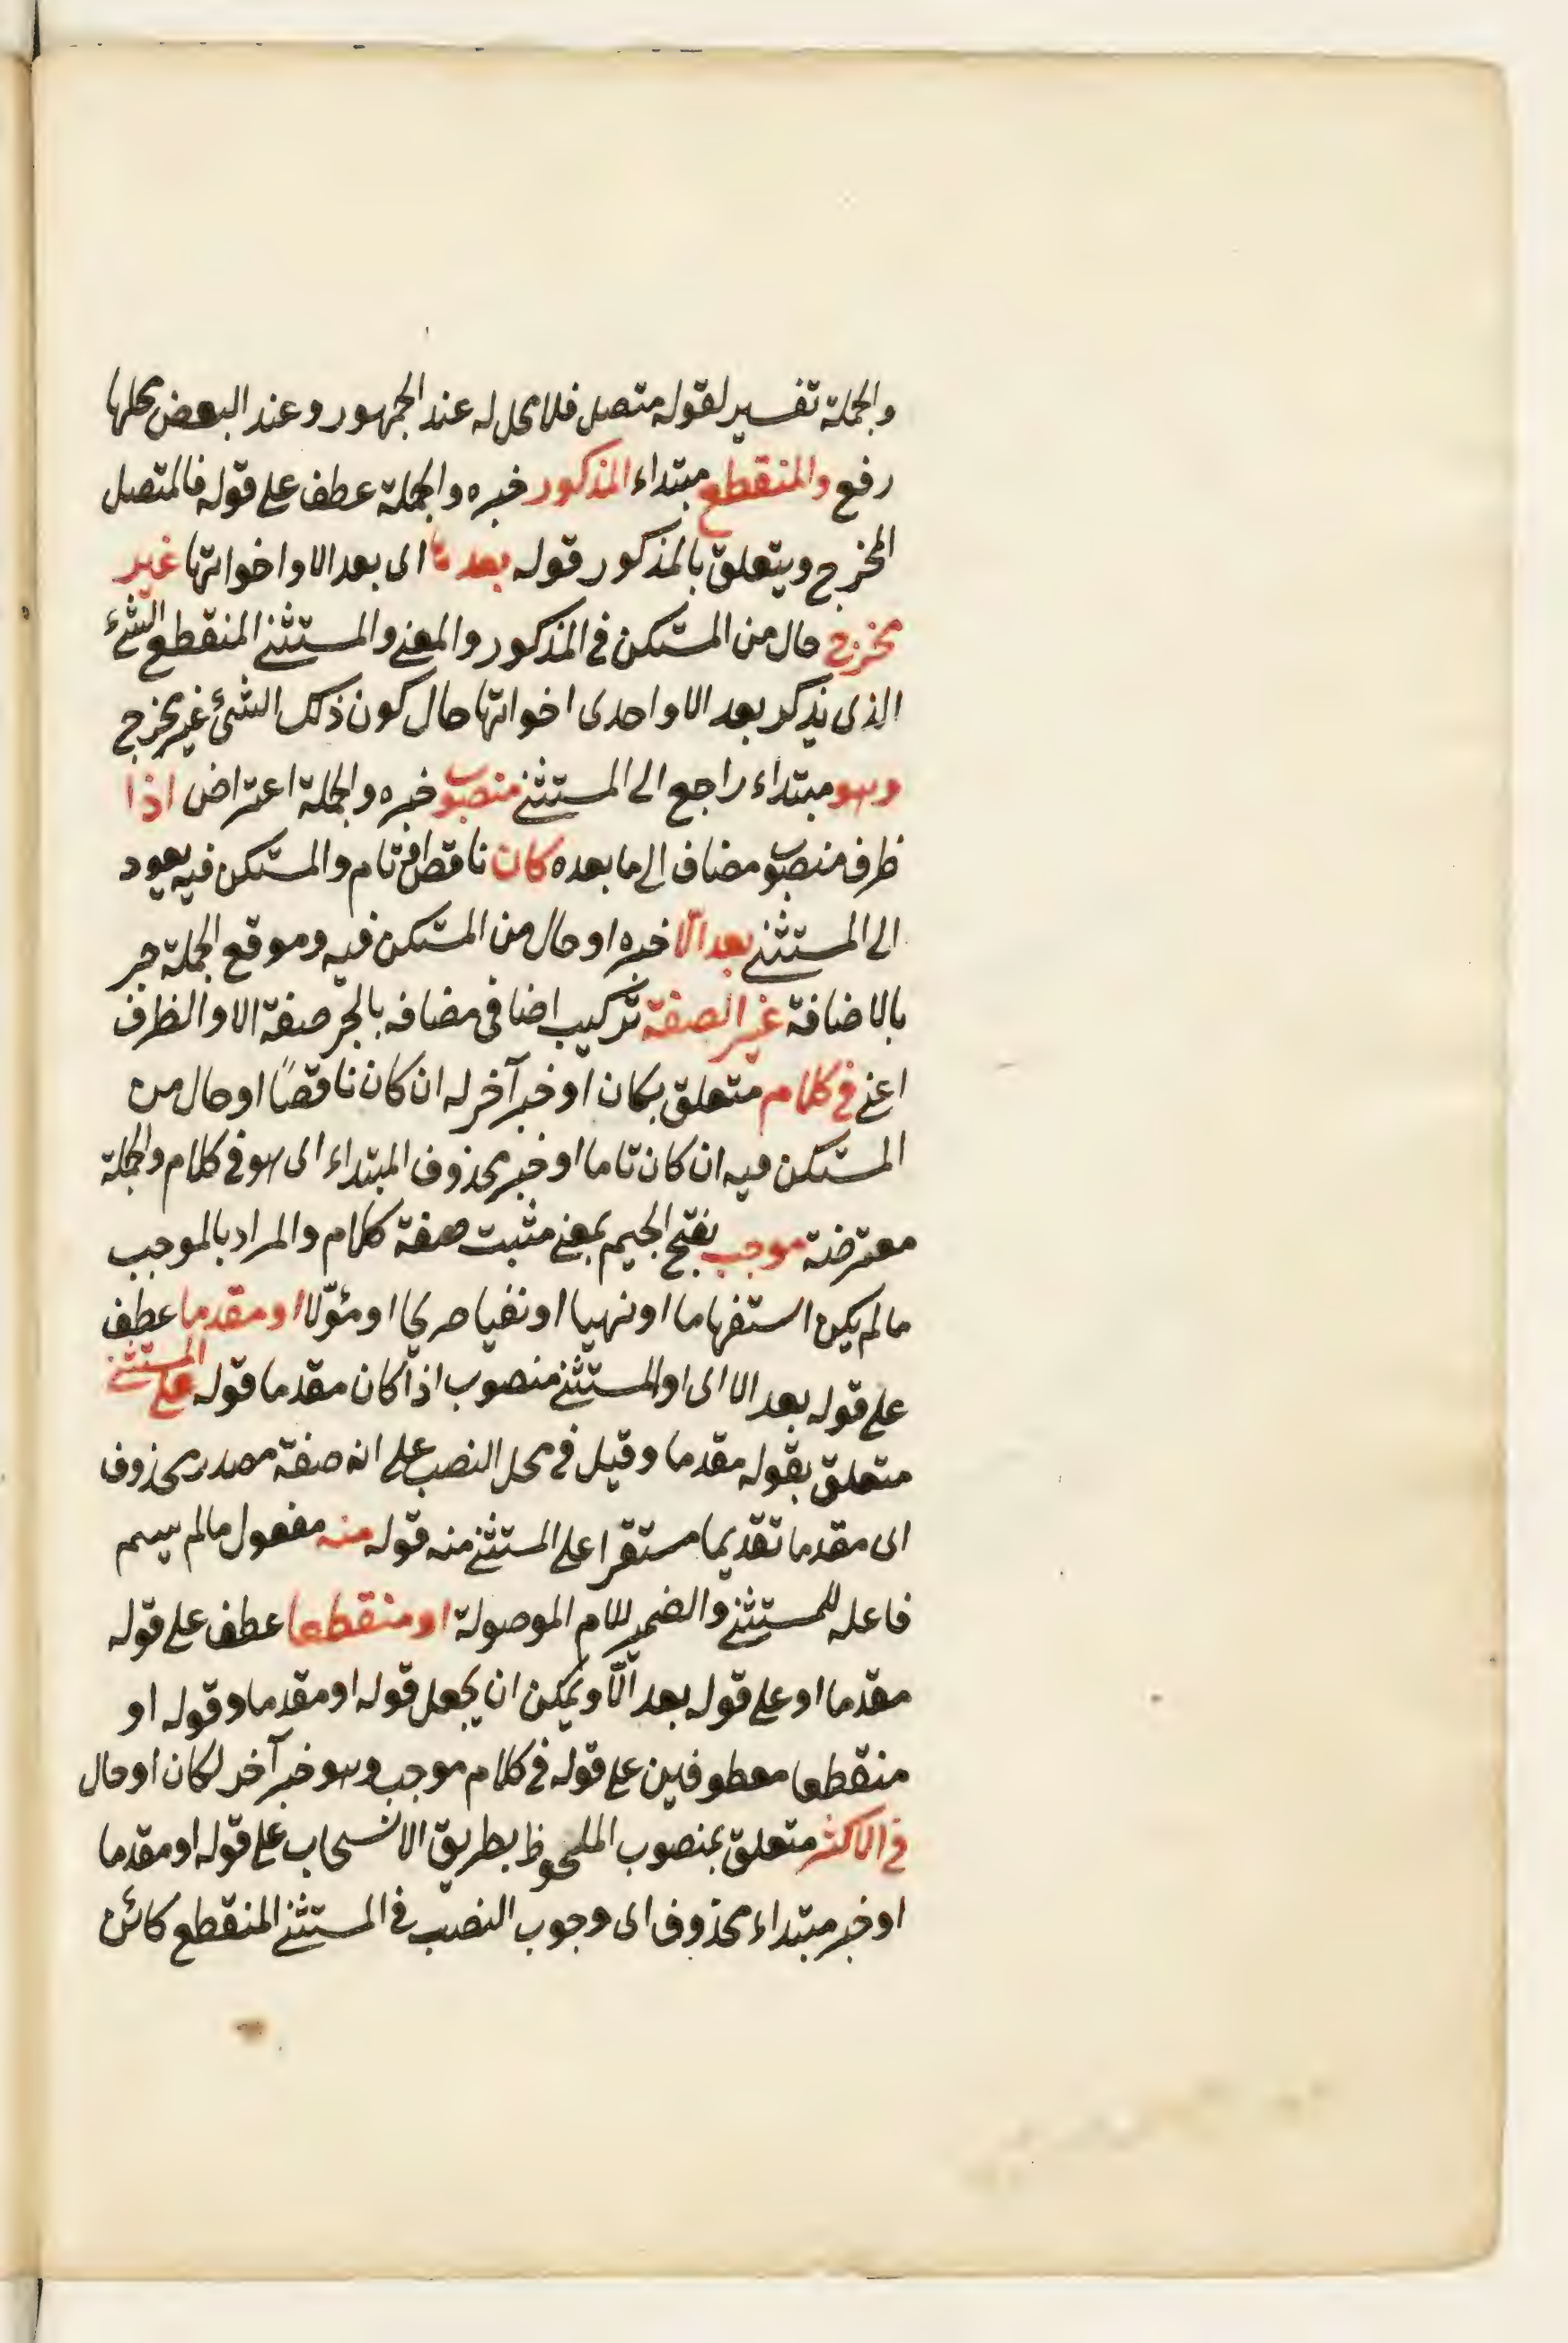 والجملة تفسير لقوله متصل فلا محل له عند الجمهور وعند البعض محلها
رفع والمنقطع مبتداء المذكور خبره والجملة عطف على قوله فالمتصل
المخرج ويتعلق بالمذكور قوله بعدها اى بعد الا واخواتها غير
مخرج حال من المستكن فى المذكور والمعنى والمستثنى المنقطع الشئ
الذى يذكر بعد الا واحدى اخواتها حال كون ذلك الشئ غير مخرج
وهو مبتداء راجع الى المستثنى منصوب خبره والجملة اعتراض اذا
ظرف منصوب مضاف الى ما بعده كان ناقص او تام والمستكن فيه يعود
الى المستثنى بعد الّا خبره او حال من المستكن فيه وموقع الجملة جر
بالاضافة غير الصفة تركيب اضافى مضافه بالجرّ صفة الا والظرف
اعنى فى كلام متعلق بكان او خبر آخر له ان كان ناقصًا او حال من
المستكن فيه ان كان تاما او خبر محذوف المبتداء اى هو فى كلام والجملة
معترضة موجب بفتح الجيم بمعنى مثبت صفة كلام والمراد بالموجب
ما لم يكن استفهاما او نهيا او نفيا صريحا او مئوّلا او مقدما عطف
على قوله بعد الا اى او المستثنى منصوب اذا كان مقدما قوله على المستثنى
متعلق بقوله مقدما وقيل فى محل النصب على انه صفة مصدر محذوف
اى مقدما تقديما مستقرا على المستثنى منه قوله منه مفعول ما لم يسم
فاعله للمستثنى والضمير للام الموصولة او منقطعا عطف على قوله
مقدما او على قوله بعد الّا ويمكن ان يجعل قوله او مقدما وقوله او
منقطعا معطوفين على قوله فى كلام موجب وهو خبر آخر لكان او حال
فى الاكثر متعلق بمنصوب الملحوظ بطريق الانسحاب على قوله او مقدما
او خبر مبتداء محذوف اى وجوب النصب فى المستثنى المنقطع كائن